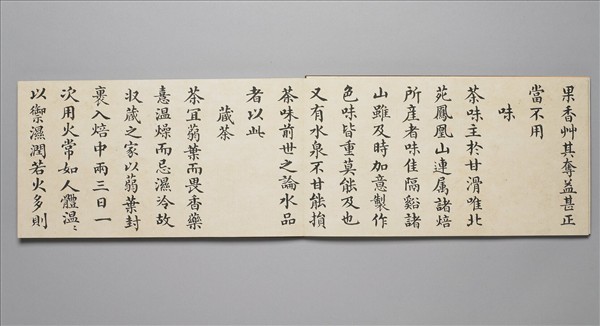 果香艸其奪益甚正
當不用
味
茶味主於甘滑唯北
苑鳳凰山連属諸焙
所産者味佳隔谿諸
山雖及時加意製作
色味皆重莫能及也
又有水泉不甘能損
茶味前世之論水品
者以此
藏茶
茶宜蒻葉而畏香藥
憙温燥而忌濕冷故
収藏之家以蒻葉封
裹入焙中兩三日一
次用火常如人體温〻
以禦濕潤若火多則